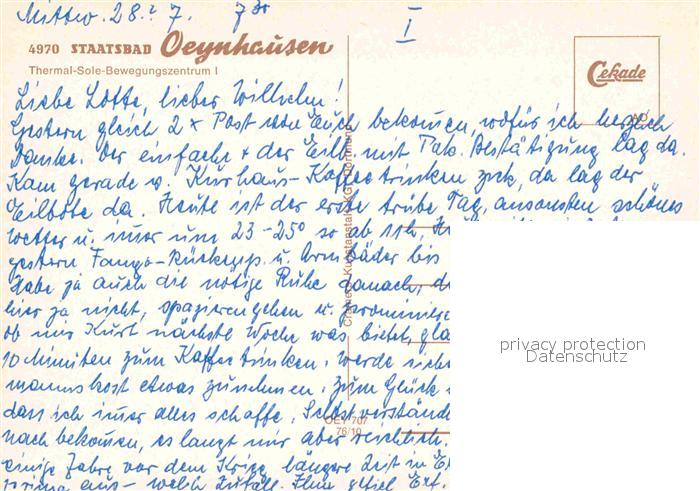 Mittwo. 28. 7. 7³⁰
I
4970 STAATSBAD Oeynhausen
Thermal-Sole-Bewegungszentrum I
Cekade
Liebe Lotte, lieber Wilhelm!
Gestern gleich 2 x Post von Euch bekommen, wofür ich herzlich
danke. Der einfache + der Eilb. mit Pak. Bestätigung lag da.
Kam gerade v. Kurhaus-Kaffeetrinken zrck, da lag der
Eilbote da. Heute ist der erste trübe Tag, ansonsten schönes
Wetter u. imer um 23-25° so ab 11h,
gestern Fango-Rückenpp. u. Armbäder bis
habe ja auch die nötige Ruhe danach,
hier ja nicht, spazierengehen u.
ob mir Kurt nächste Woche was bietet,
10 Minuten zum Kaffeetrinken. Werde
mannskost etwas zunehmen. Zum Glück
dass ich imer alles schaffe. Selbstverständ
nach bekommen, es langt mir aber reichlich.
einige Jahre vor dem Krieg längere Zeit in
aus - welch Zufall. Ihm gefiel Erf.
Cramers Kunstanstalt KG, Dortmund
OEY 707
76/10
privacy protection
Datenschutz